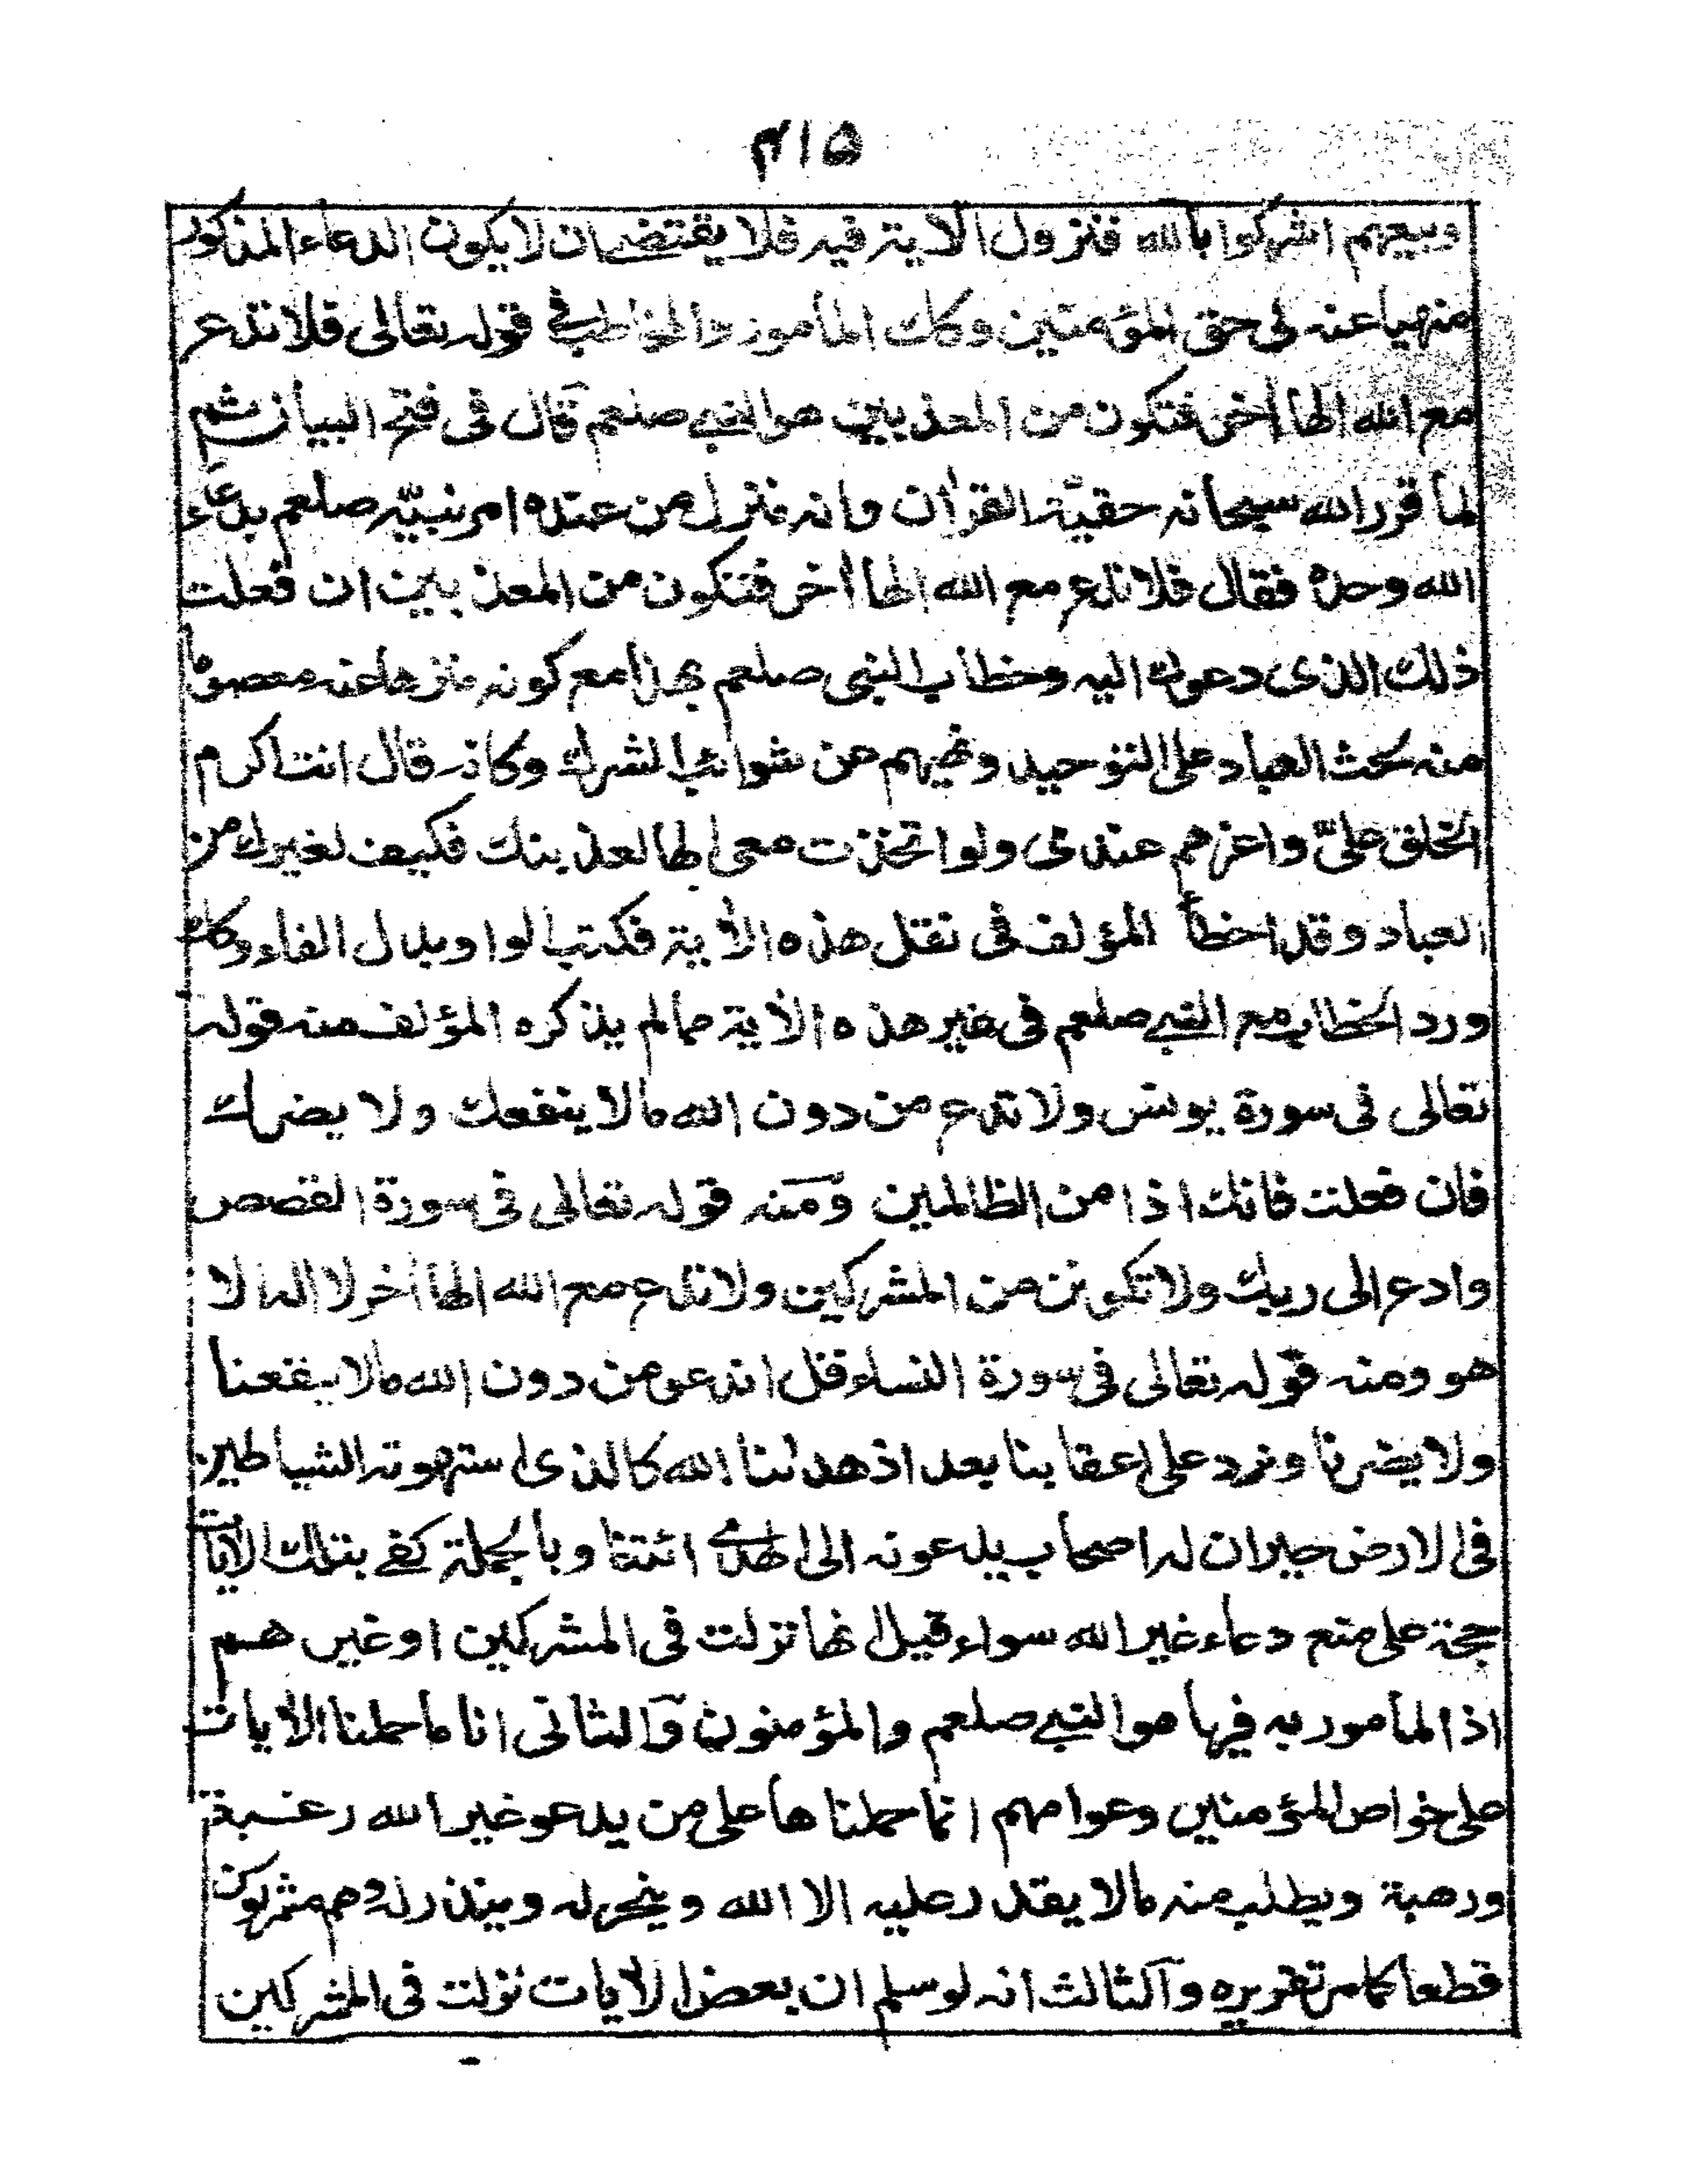 ٤١٥
وبيعهم اشركوا بالله فنزول الاية فيه فلا يقتضى ان لا يكون الدعاء المذكور
منهيا عنه فى حق المؤمنين وكك المأمور والمخاطب فى قوله تعالى فلا تدع
مع الله الها اٰخر فتكون من المعذبين هو النبى صلعم قال فى فتح البيان ثم
لما قرر الله سبحانه حقيّة القراٰن وانه منزل من عنده امر نبيّه صلعم بدعاء
الله وحده فقال فلا تدع مع الله الها اٰخر فتكون من المعذبين ان فعلت
ذلك الذى دعوك اليه وخطاب النبى صلعم بهذا مع كونه منزها عنه معصوما
منه لحث العباد على التوحيد ونهيهم عن شوائب الشرك وكانه قال انت اكرم
الخلق علىّ واعزهم عندى ولو اتخذت معى الها لعذبتك فكيف لغيرك من
العباد وقد اخطأ المؤلف فى نقل هذه الاٰية فكتب الواو بدل الفاء وكك
ورد الخطاب مع النبى صلعم فى غير هذه الاٰية مما لم يذكره المؤلف منه قوله
تعالى فى سورة يونس ولا تدع من دون الله ما لا ينفعك ولا يضرك
فان فعلت فانك اذا من الظالمين ومنه قوله تعالى فى سورة القصص
وادع الى ربك ولا تكونن من المشركين ولا تدع مع الله الها اٰخر لا اله الا
هو ومنه قوله تعالى فى سورة النساء قل اندعو من دون الله ما لا ينفعنا
ولا يضرنا ونرد على اعقابنا بعد اذ هدٰىنا الله كالذى استهوته الشياطين
فى الارض حيران له اصحاب يدعونه الى الهدى ائتنا وبالجملة كفى بتلك الاٰيات
حجة على منع دعاء غير الله سواء قيل انها نزلت فى المشركين او غيرهم
اذ المأمور به فيها هو النبى صلعم والمؤمنون والثانى انا ما حملنا الاٰيات
على خواص المؤمنين وعوامهم انما حملناها على من يدعو غير الله رغبة
ورهبة ويطلب منه ما لا يقدر عليه الا الله وينحر له وينذر له وهم مشركون
قطعا كما مر تقريره والثالث انه لو سلم ان بعض الاٰيات نزلت فى المشركين